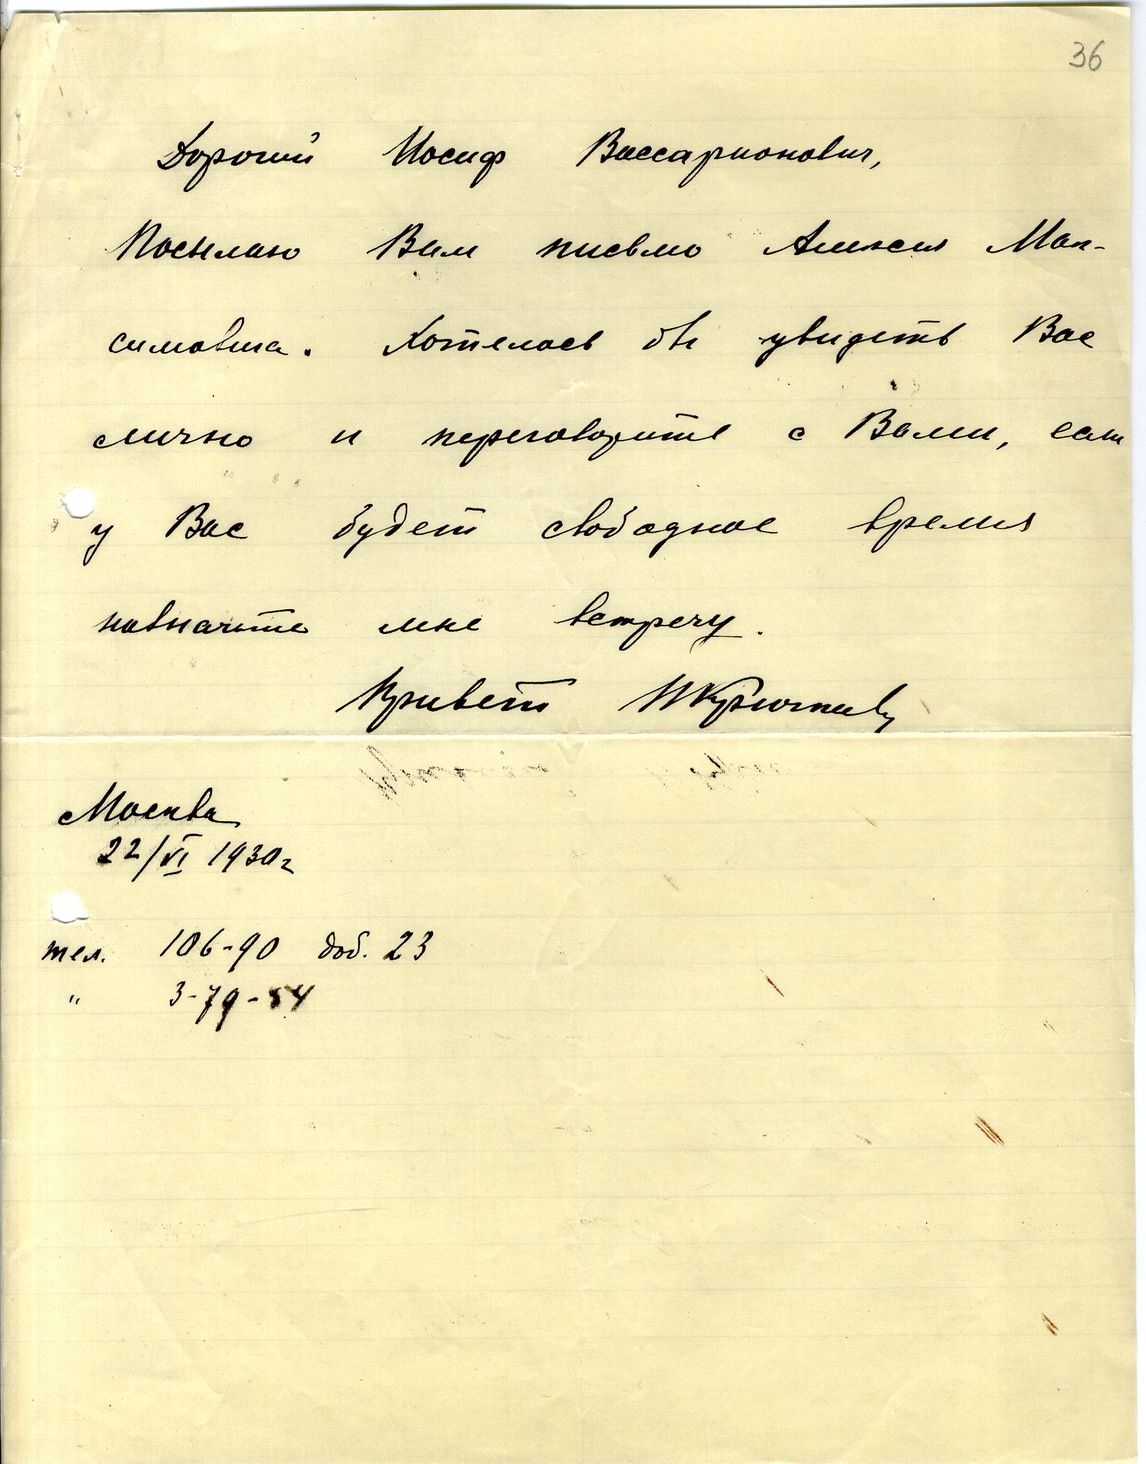 36
Дорогой Иосиф Виссарионович,
Посылаю Вам письмо Алексея Мак-
симовича. Хотелось бы увидеть Вас
лично и переговорить с Вами, если
у Вас будет свободное время
назначьте мне встречу.
Привет ПКрючков
Москва
22/VI 1930г
тел. 106-90 доб. 23
" 3-79-54